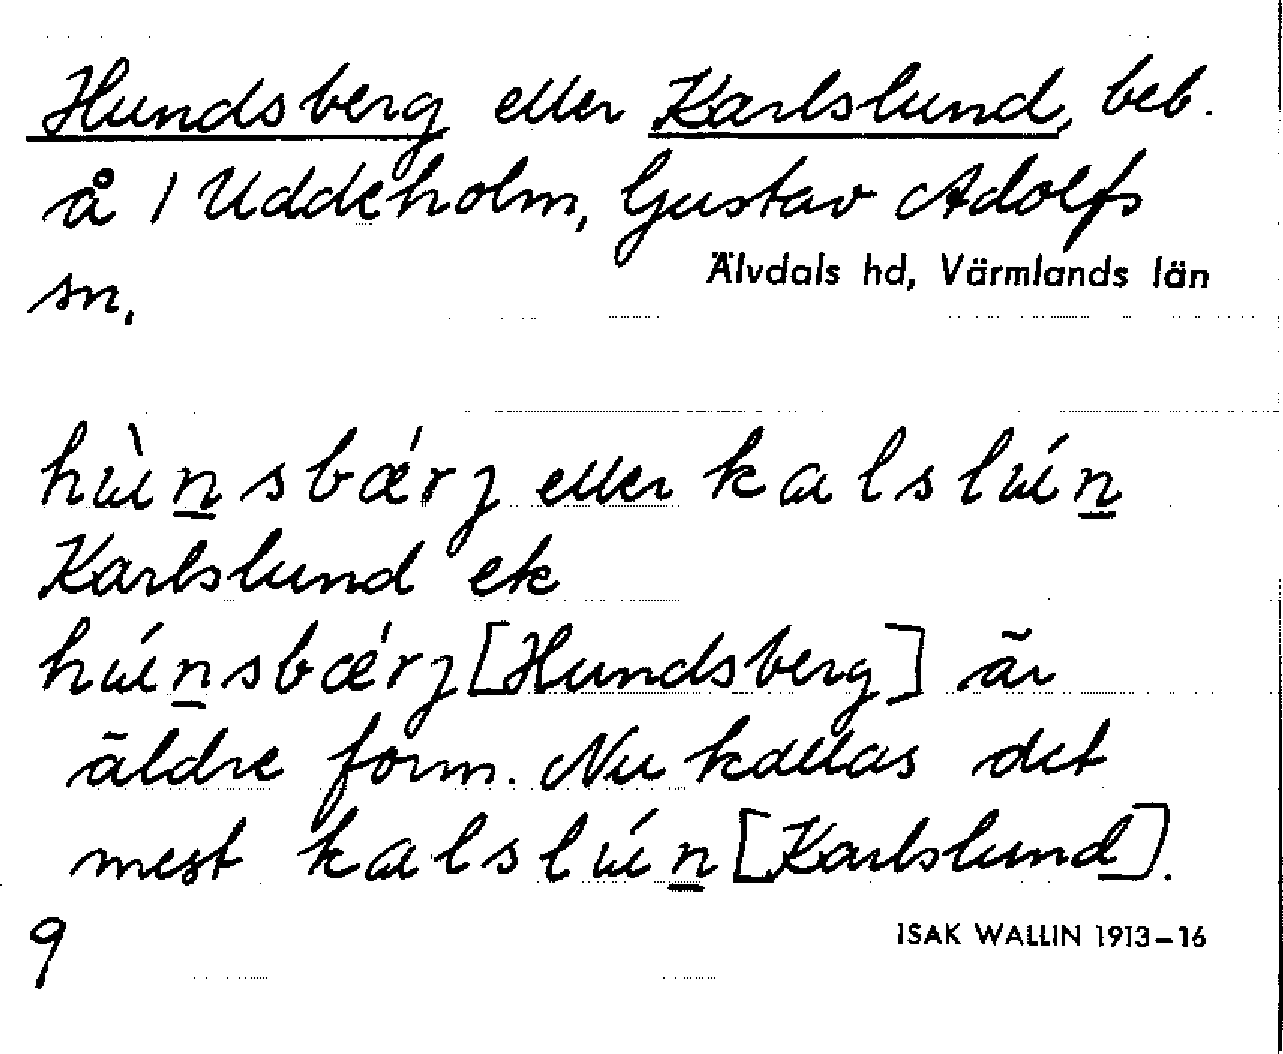 Hundsberg eller Karlslund, beb.
å 1 Uddeholm, Gustav Adolfs
sn.
Älvdals hd, Värmlands län
hùnsbǽrj eller kalslún
Karlslund ek
húnsbǽrj [Hundsberg] är
äldre form. Nu kallas det
mest kalslún [Karlslund].
9
ISAK WALLIN 1913–16